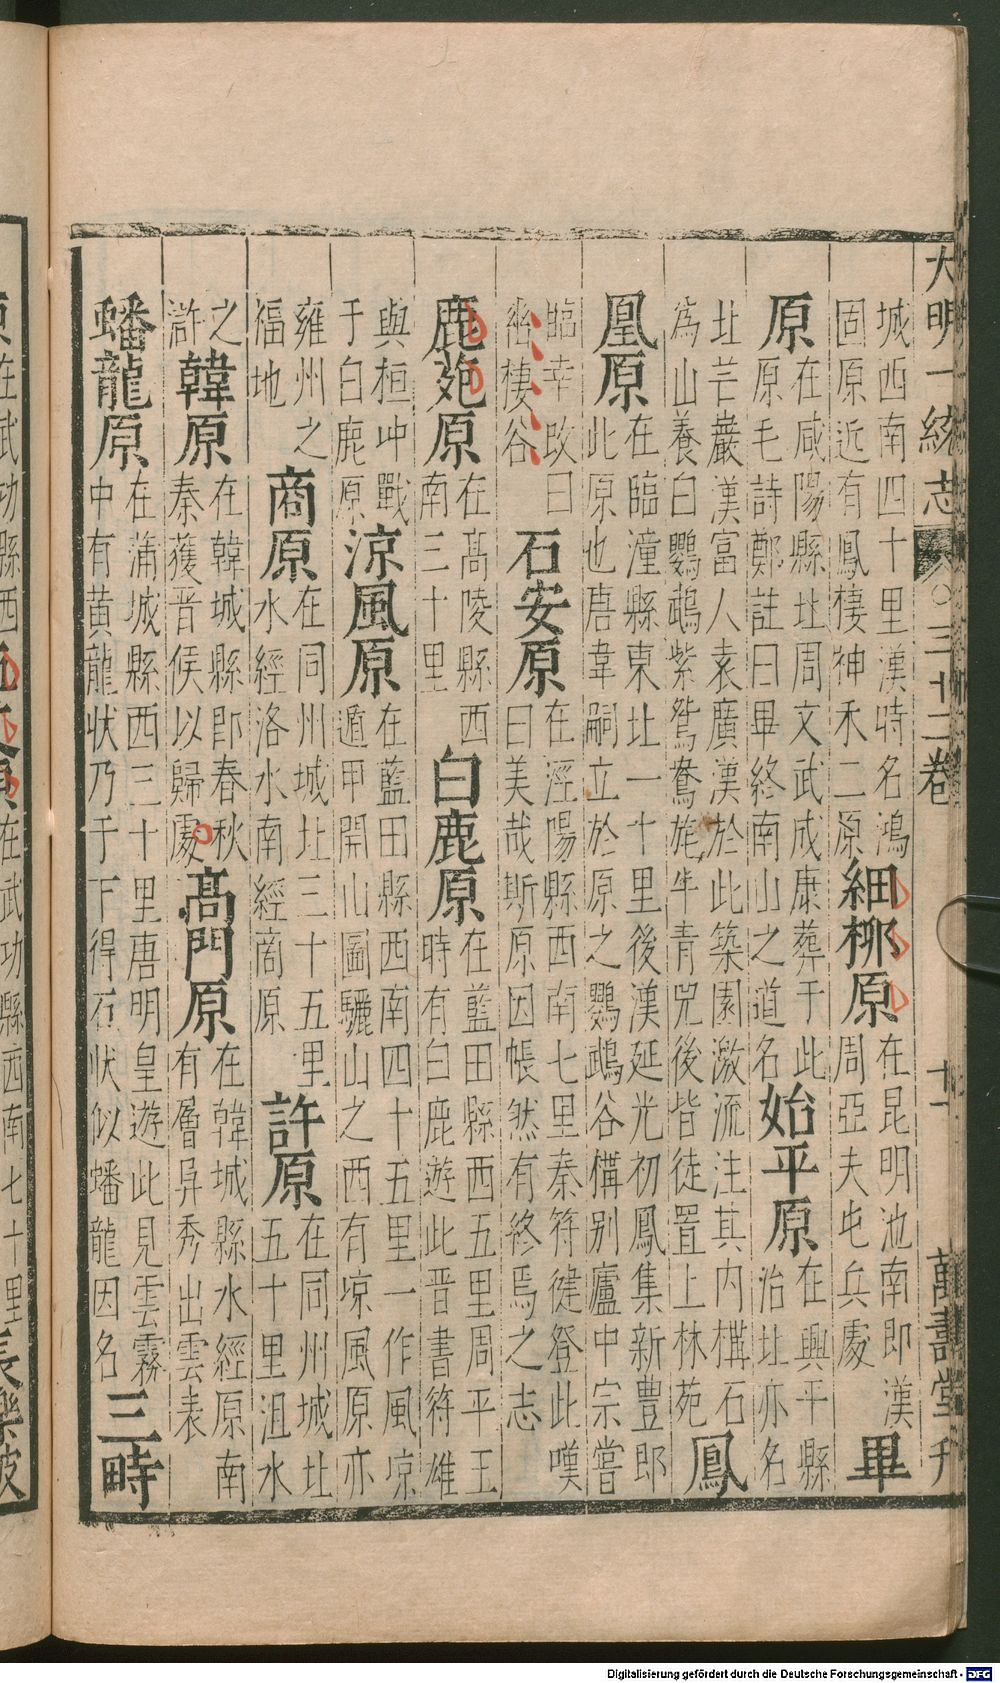 大明一統志 三十二卷 十一 萬壽堂刋
城西南四十里漢時名鴻
固原近有鳳棲神禾二原
細柳原
在昆明池南即漢
周亞夫屯兵處
畢
原
在咸陽縣北周文武成康葬于此
原毛詩鄭註曰畢終南山之道名
始平原
在興平縣
治北亦名
北芒巖漢富人袁廣漢於此築園激流注其内構石
為山養白鸚鵡紫鴛鴦旄牛青兕後皆徒置上林苑
鳳
凰原
在臨潼縣東北一十里後漢延光初鳳集新豊郎
此原也唐韋嗣立於原之鸚鵡谷構别廬中宗嘗
臨幸改曰
幽棲谷
石安原
在涇陽縣西南七里秦符健登此嘆
曰美哉斯原因悵然有終焉之志
鹿苑原
在高陵縣西
南三十里
白鹿原
在藍田縣西五里周平王
時有白鹿遊此晋書符雄
與桓冲戰
于白鹿原
涼風原
在藍田縣西南四十五里一作風凉
遁甲開山圖驪山之西有凉風原亦
雍州之
福地
商原
在同州城北三十五里
水經洛水南經商原
許原
在同州城北
五十里沮水
之
滸
韓原
在韓城縣即春秋
秦獲晋侯以歸處
高門原
在韓城縣水經原南
有層阜秀出雲表
蟠龍原
在蒲城縣西三十里唐明皇遊此見雲霧
中有黄龍状乃于下得石状似蟠龍因名
三畤
在武功縣西
在武功縣西南七十里
長樂坡
Digitalisierung gefördert durch die Deutsche Forschungsgemeinschaft - DFG